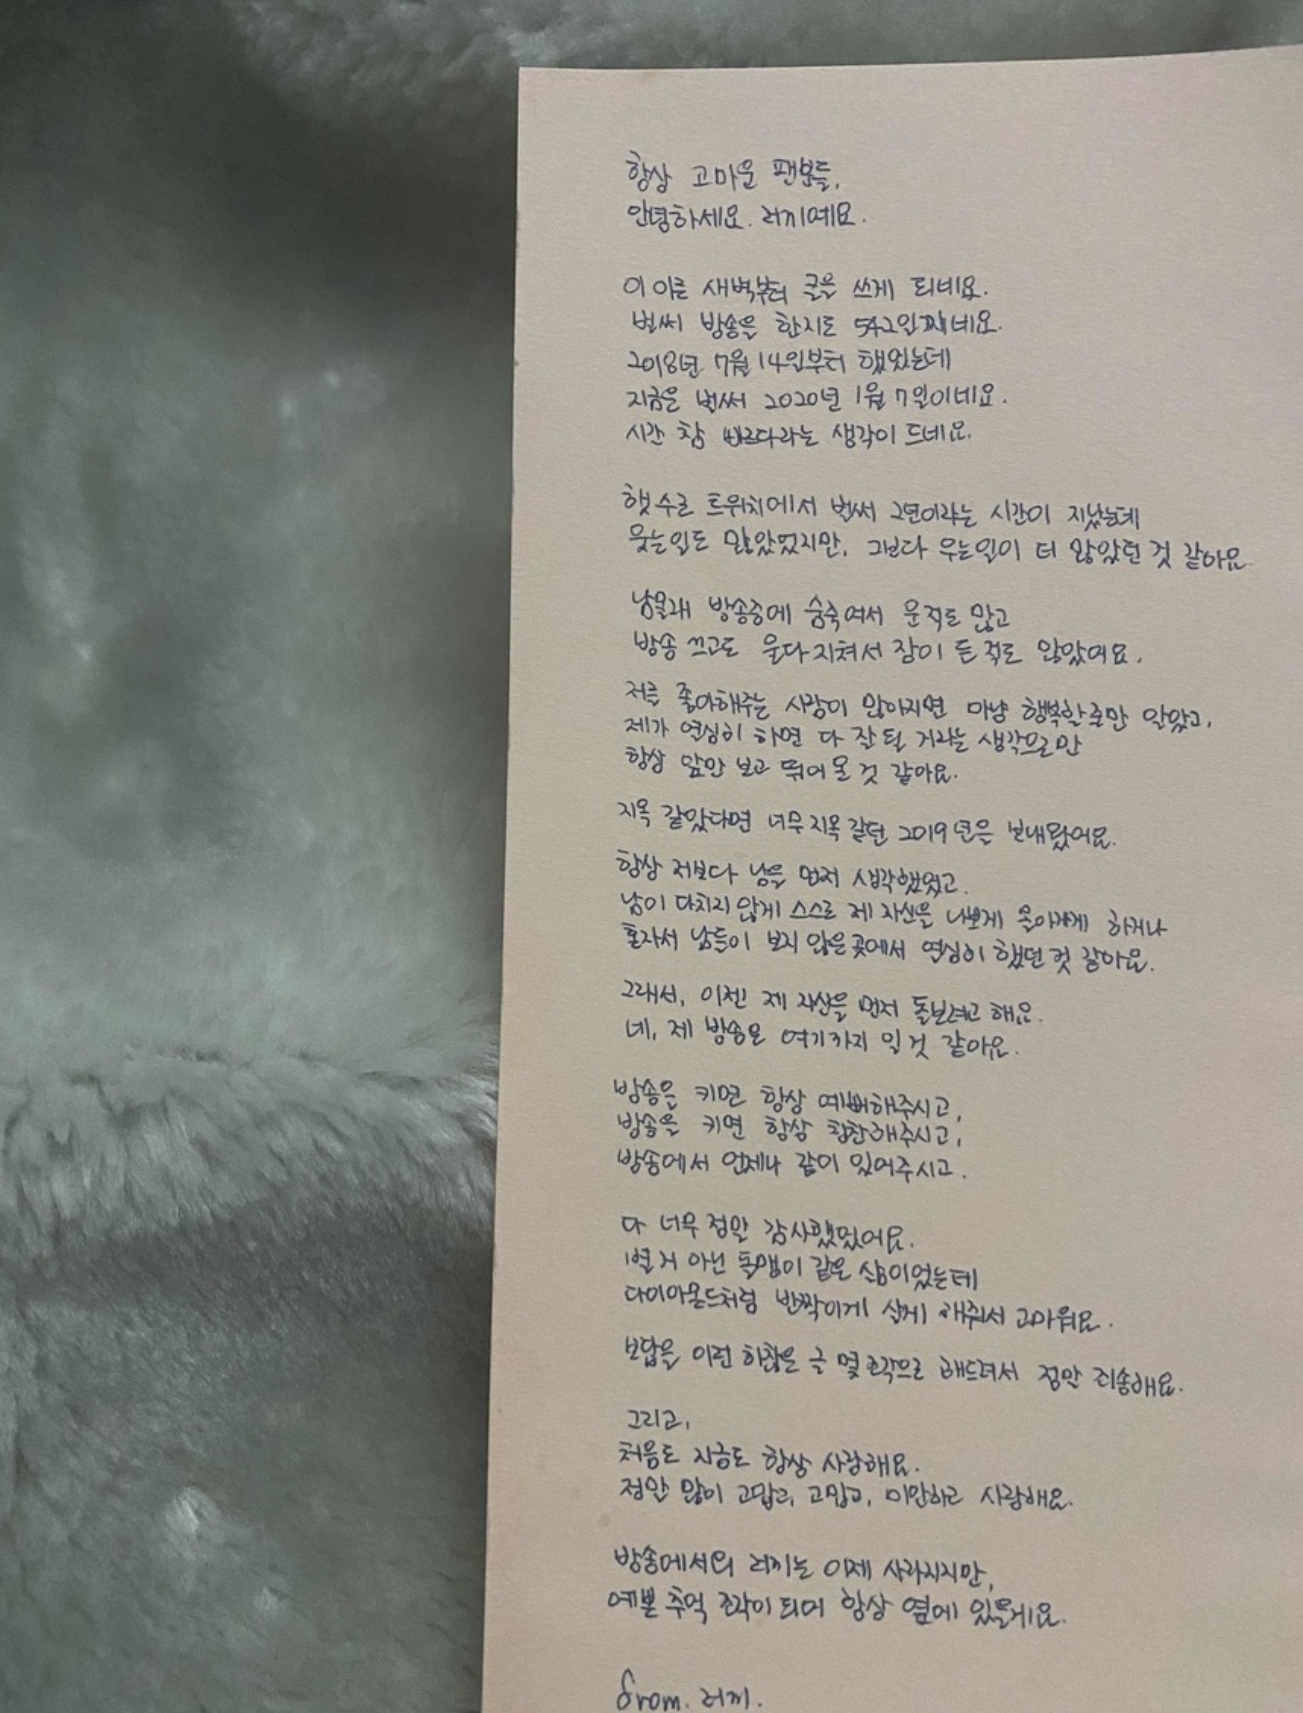 항상 고마운 팬분들,
안녕하세요. 러끼예요.
이 이른 새벽부터 글을 쓰게 되네요.
벌써 방송을 한지도 542일째네요.
2018년 7월 14일부터 했었는데
지금은 벌써 2020년 1월 7일이네요.
시간 참 빠르다라는 생각이 드네요.
햇수로 트위치에서 벌써 2년이라는 시간이 지났는데
웃는일도 많았었지만, 그보다 우는일이 더 많았던 것 같아요
남몰래 방송중에 숨죽여서 운적도 많고
방송 끄고도 울다 지쳐서 잠이 든 적도 많았어요.
저를 좋아해주는 사람이 많아지면 마냥 행복할 줄만 알았고,
제가 열심히 하면 다 잘 될 거라는 생각으로만
항상 앞만 보고 뛰어 온 것 같아요.
지옥 같았다면 너무 지옥 같던 2019년을 보내왔어요.
항상 저보다 남을 먼저 생각했었고,
남이 다치지 않게 스스로 제 자신을 나쁘게 몰아가게 하거나
혼자서 남들이 보지 않은 곳에서 열심히 했던 것 같아요.
그래서, 이젠 제 자신을 먼저 돌보려고 해요.
네, 제 방송은 여기까지 일 것 같아요.
방송을 키면 항상 예뻐해주시고,
방송을 키면 항상 칭찬해주시고,
방송에서 언제나 같이 있어주시고.
다 너무 정말 감사했었어요.
별 거 아닌 돌맹이 같은 삶이었는데
다이아몬드처럼 반짝이게 살게 해줘서 고마워요.
보답을 이런 하찮은 글 몇 조각으로 해드려서 정말 죄송해요.
그리고,
처음도 지금도 항상 사랑해요.
정말 많이 고맙고, 고맙고, 미안하고 사랑해요.
방송에서의 러끼는 이제 사라지지만,
예쁜 추억 조각이 되어 항상 옆에 있을게요.
from. 러끼.